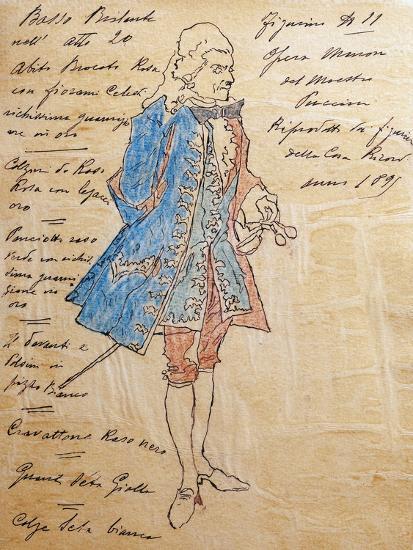 Basso Brillante
nell' atto 2o
Abito Brocato Rosa
con fiorami Celesti
ricchissima guarnigi
one in oro
Calzone di Raso
Rosa con
oro
Panciotto raso
Verde con ricchis
sima guarni
gione in
oro
2 Davanti e
Polsini in
pizzo Bianco
Cravattone Raso nero
Guanti Seta Gialla
Calze Seta bianca
Figurino No 11
Opera Manon
del Maestro
Puccini
Riprodotti dai figurini
della Casa Ricordi
anno 1895